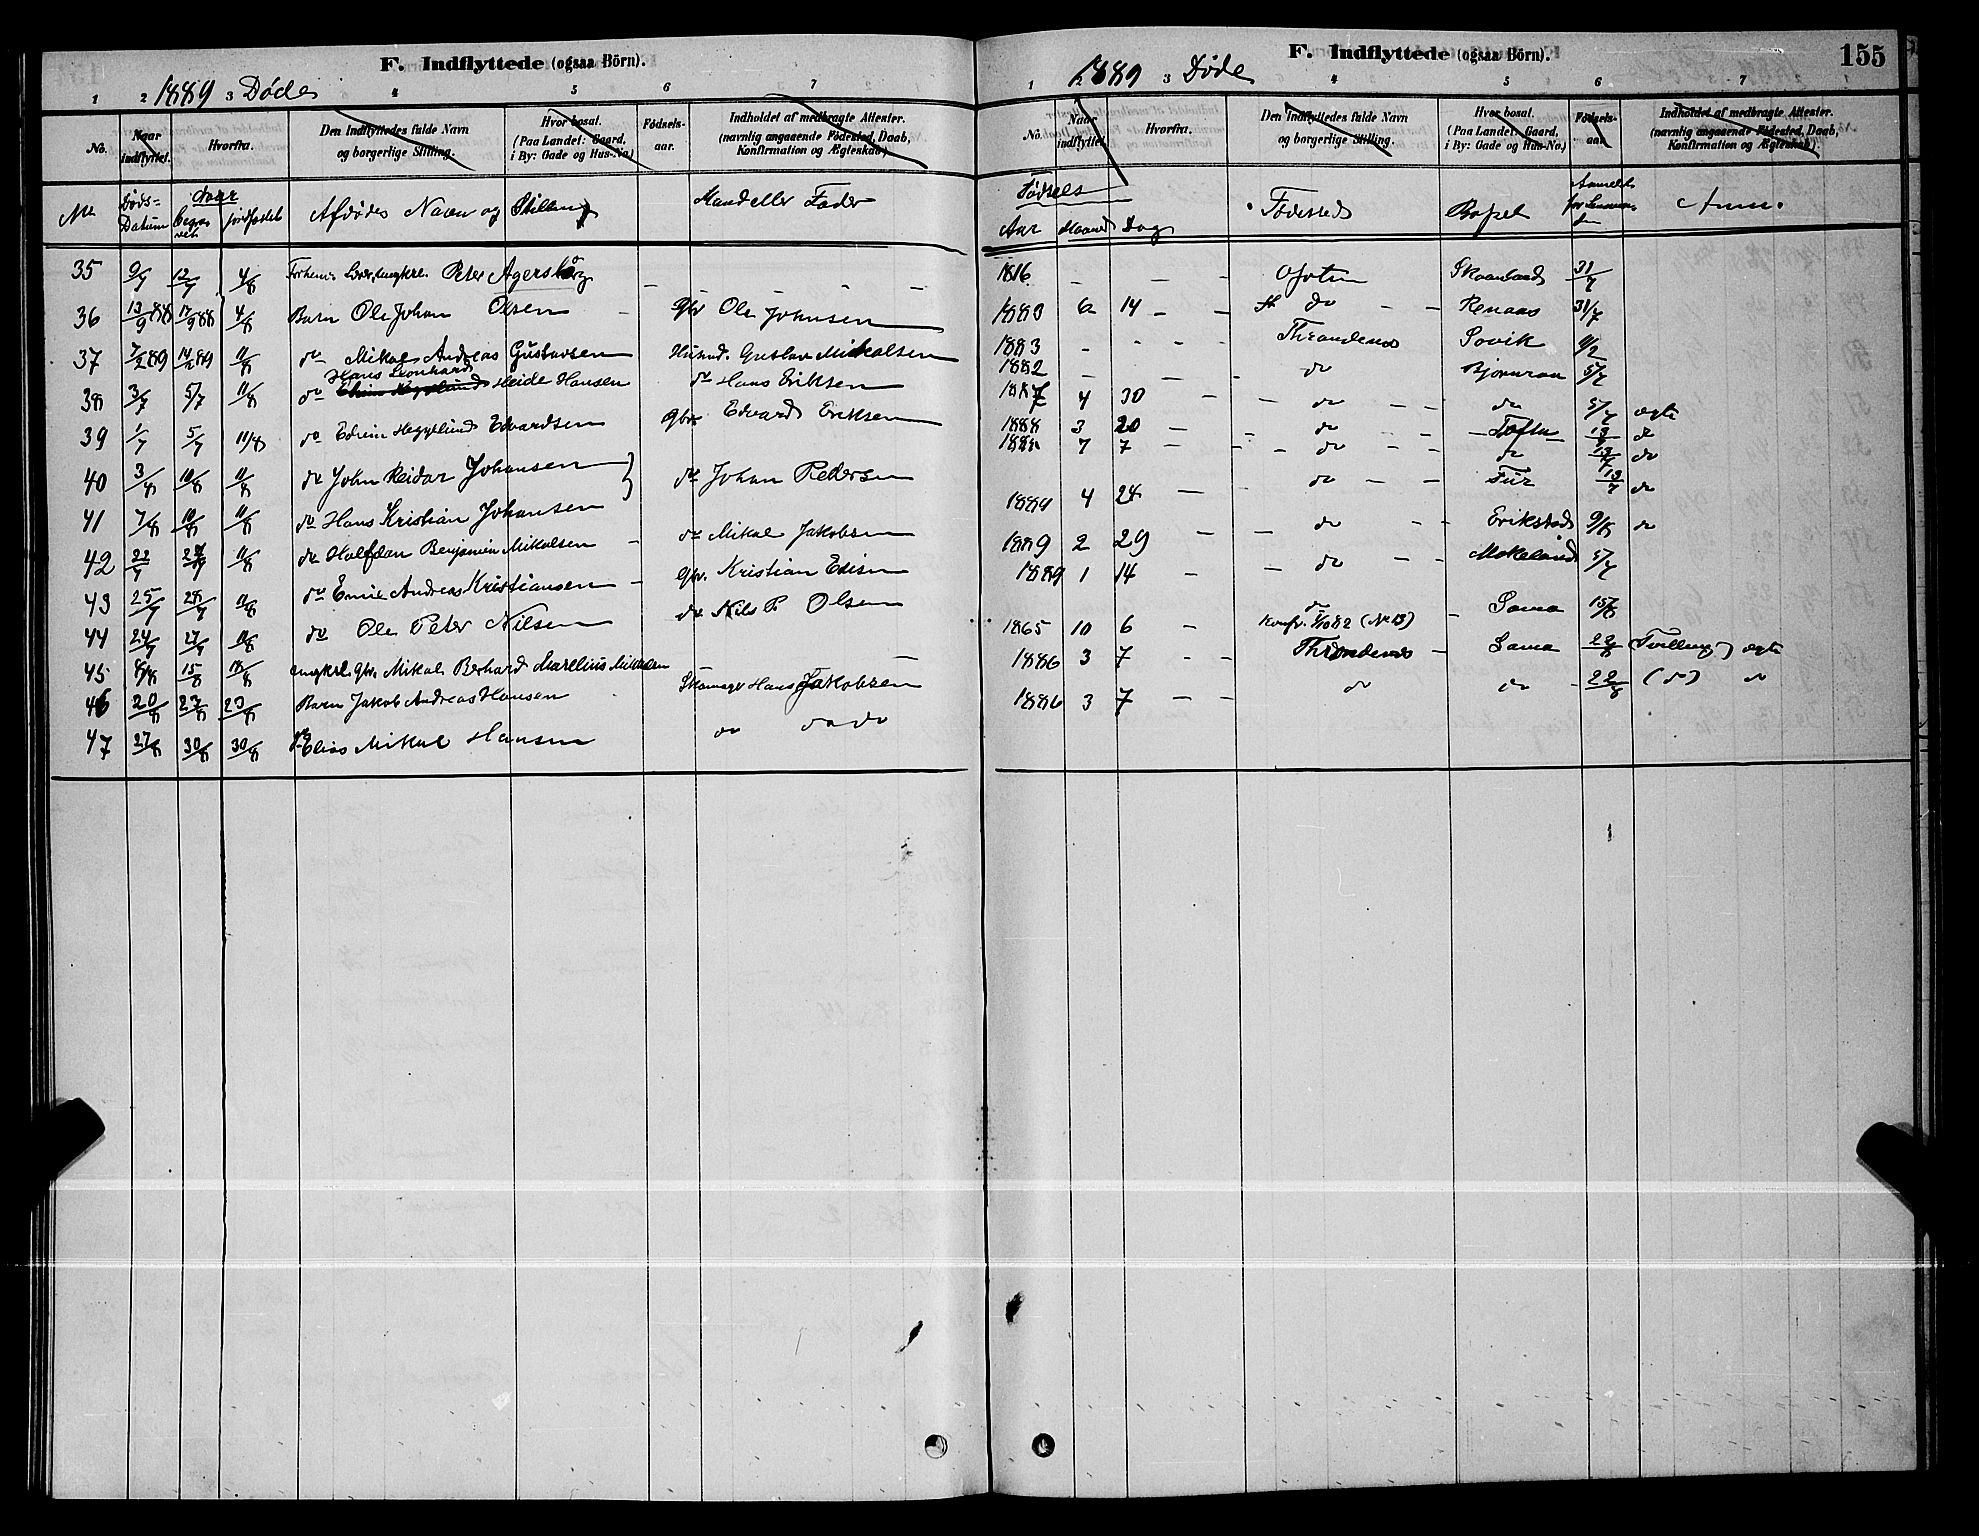 F. Indflyttede (ogsaa Börn).
1889 Døde
1 2 3 4 5 6 7
No. Naar indflyttet. Hvorfra. Den Indflyttedes fulde Navn og borgerlige Stilling. Hvor bosat. (Paa Landet: Gaard, i By: Gade og Hus-No.) Fødsels-aar. Indholdet af medbragte Attester. (navnlig angaaende Födested, Daab, Konfirmation og Ægteskab).
No Døds-Datum Naar Begravet jordfæstet Afdødes Navn og Stilling Mand eller Fader
35 9/7 12/7 4/8 Peter Agersborg
36 13/9 88 17/9 88 4/8 Barn Ole Johan Olsen - Gbr Ole Johnsen
37 7/2 89 14/2 89 11/8 do Mikal Andreas Gustavsen Husmd. Gustav Mikalsen
Hans Leonhard
38 3/7 5/7 11/8 do Heide Hansen do Hans Eriksen
39 1/7 5/7 11/8 do Edvin Heggelund Edvardsen Gbr. Edvard Eriksen
40 3/8 10/8 11/8 do John Reidar Johansen do Johan Pedersen
41 7/8 10/8 11/8 do Hans Kristian Johansen
42 22/7 27/7 11/8 do Halfdan Benjamin Mikalsen - do Mikal Jakobsen
43 25/7 28/7 11/8 do Andreas Kristiansen - Gbr. Kristian
44 24/7 27/7 11/8 do Ole Peter Nilsen do Nils P. Olsen
45 8/8 15/8 18/8 ungkrl gbr. Mikal Berhard Marelius Mikalsen -
46 20/8 23/8 23/8 Barn Jakob Andreas Hansen Hans Jakobsen
47 27/8 30/8 30/8 do Elias Mikal Hansen do do do
155
F. Indflyttede (ogsaa Börn).
1889 Døde
1 2 3 4 5 6 7
No. Naar indflyttet. Hvorfra. Den Indflyttedes fulde Navn og borgerlige Stilling. Hvor bosat. (Paa Landet: Gaard, i By: Gade og Hus-No.) Fødsels-aar. Indholdet af medbragte Attester. (navnlig angaaende Födested, Daab, Konfirmation og Ægteskab).
Fødsels
Aar Maaned Dag Fødested Bopæl Anmeldt for Anm.
1816 - - - Ofoten Skaanland 31/7
1880 6 14 - - do - - Renaas 31/7
1883 - - - Throndenes Sovik
1882 - - - do 5/7
1887 4 30 - - do - - do 5/7 ægte
1888 3 20 - - do - - Tofta 13/7 do
1888 7 7 - - do - - do 13/7 do
1889 4 24 - - do - - 13/7 do
1889 2 29 - - do - - Erikstad 9/8 do
1889 1 14 - - do - Mokeland 5/7
do
1865 10 6 - Konfr. (No 13) - Sama 15/8
1886 3 7 - - Throndenes - Sama 22/8 Tvilling ægte
1886 3 7 - - do do - 22/8 (do) do